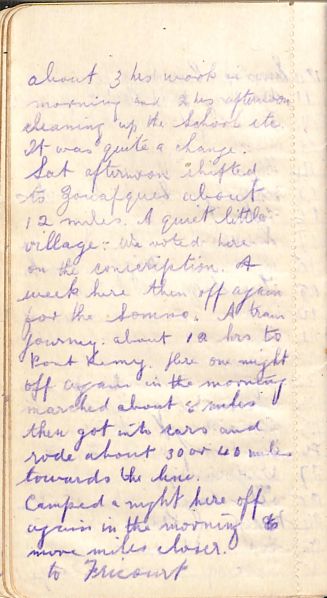 about 3 hrs work in
morning and 2 hrs afternoon
cleaning up the School etc
It was quite a change.
Sat afternoon shifted
to Zouafques about
12 miles. A quiet little
village: We voted here
on the conscription. A
week here then off again
for the Somme. A train
journey about 12 hrs to
Pont Remy. Here one night
off again in the morning
marched about miles
then got into cars and
rode about 30 or 40 miles
towards the line.
Camped a night here off
again in the morning
move miles closer.
to Fricourt